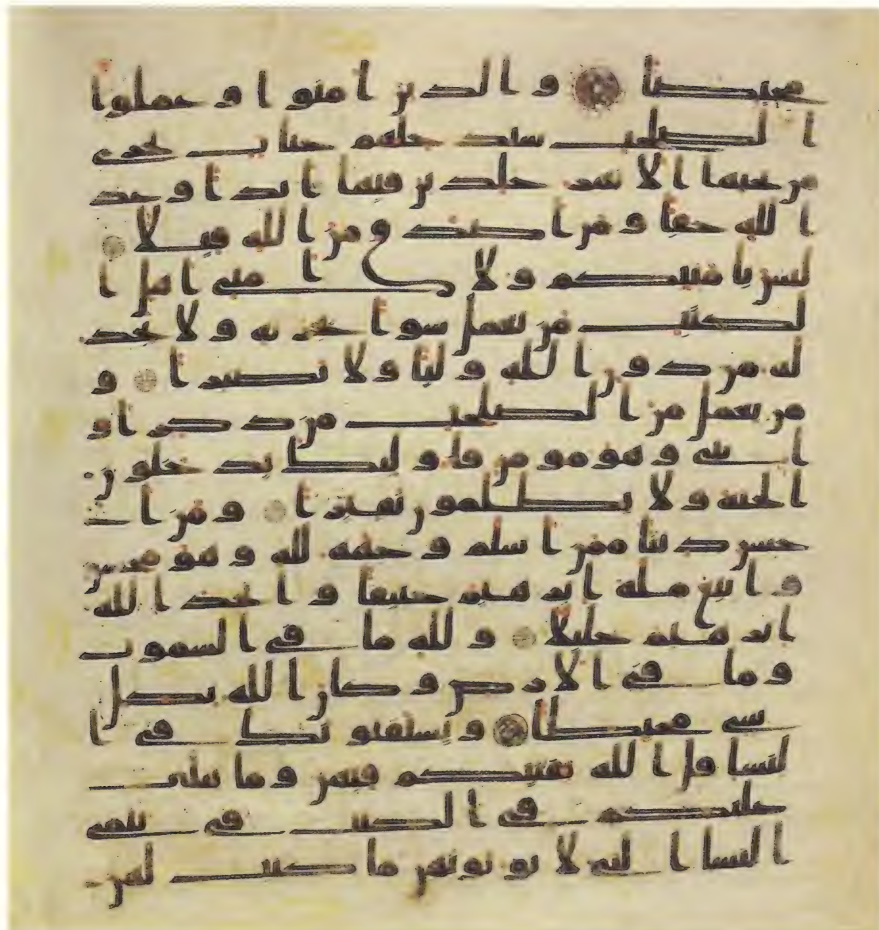 محيصا والذين امنوا وعملوا
الصلحت سندخلهم جنت تجرى
من تحتها الانهر خلدين فيها ابدا وعد
الله حقا ومن اصدق من الله قيلا
ليس بامنيكم ولا امنى اهل ا
لكتب من يعمل سوا يجز به ولا يجد
له من دون الله وليا ولا نصيرا و
من يعمل من الصلحت من ذكر او
انثى وهو مومن فاوليك يدخلون
الجنه ولا يظلمون نقيرا ومن ا
حسن دينا ممن اسلم وجهه لله وهو محسن
واتبع مله ابرهيم حنيفا واتخذ الله
ابرهيم خليلا ولله ما فى السموت
وما فى الارض وكان الله بكل
شى محيطا ويستفتونك فى ا
لنسا قل الله يفتيكم فيهن وما يتلى
عليكم فى الكتب فى يتمى
النسا التى لا توتونهن ما كتب لهن